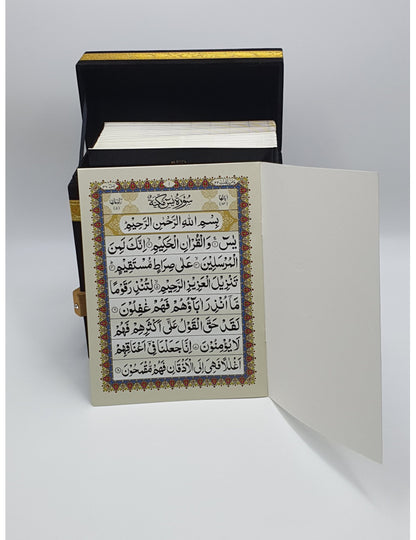 سُوْرَةُ يٰسٓ مَكِّيَّةٌ
بِسْمِ اللّٰهِ الرَّحْمٰنِ الرَّحِيْمِ
يٰسٓ ۚ وَالْقُرْاٰنِ الْحَكِيْمِ ۙ اِنَّكَ لَمِنَ
الْمُرْسَلِيْنَ ۙ عَلٰى صِرَاطٍ مُّسْتَقِيْمٍ
تَنْزِيْلَ الْعَزِيْزِ الرَّحِيْمِ ۙ لِتُنْذِرَ قَوْمًا
مَّآ اُنْذِرَ اٰبَآؤُهُمْ فَهُمْ غٰفِلُوْنَ
لَقَدْ حَقَّ الْقَوْلُ عَلٰٓى اَكْثَرِهِمْ فَهُمْ
لَا يُؤْمِنُوْنَ اِنَّا جَعَلْنَا فِيْٓ اَعْنَاقِهِمْ
اَغْلٰلًا فَهِيَ اِلَى الْاَذْقَانِ فَهُمْ مُّقْمَحُوْنَ